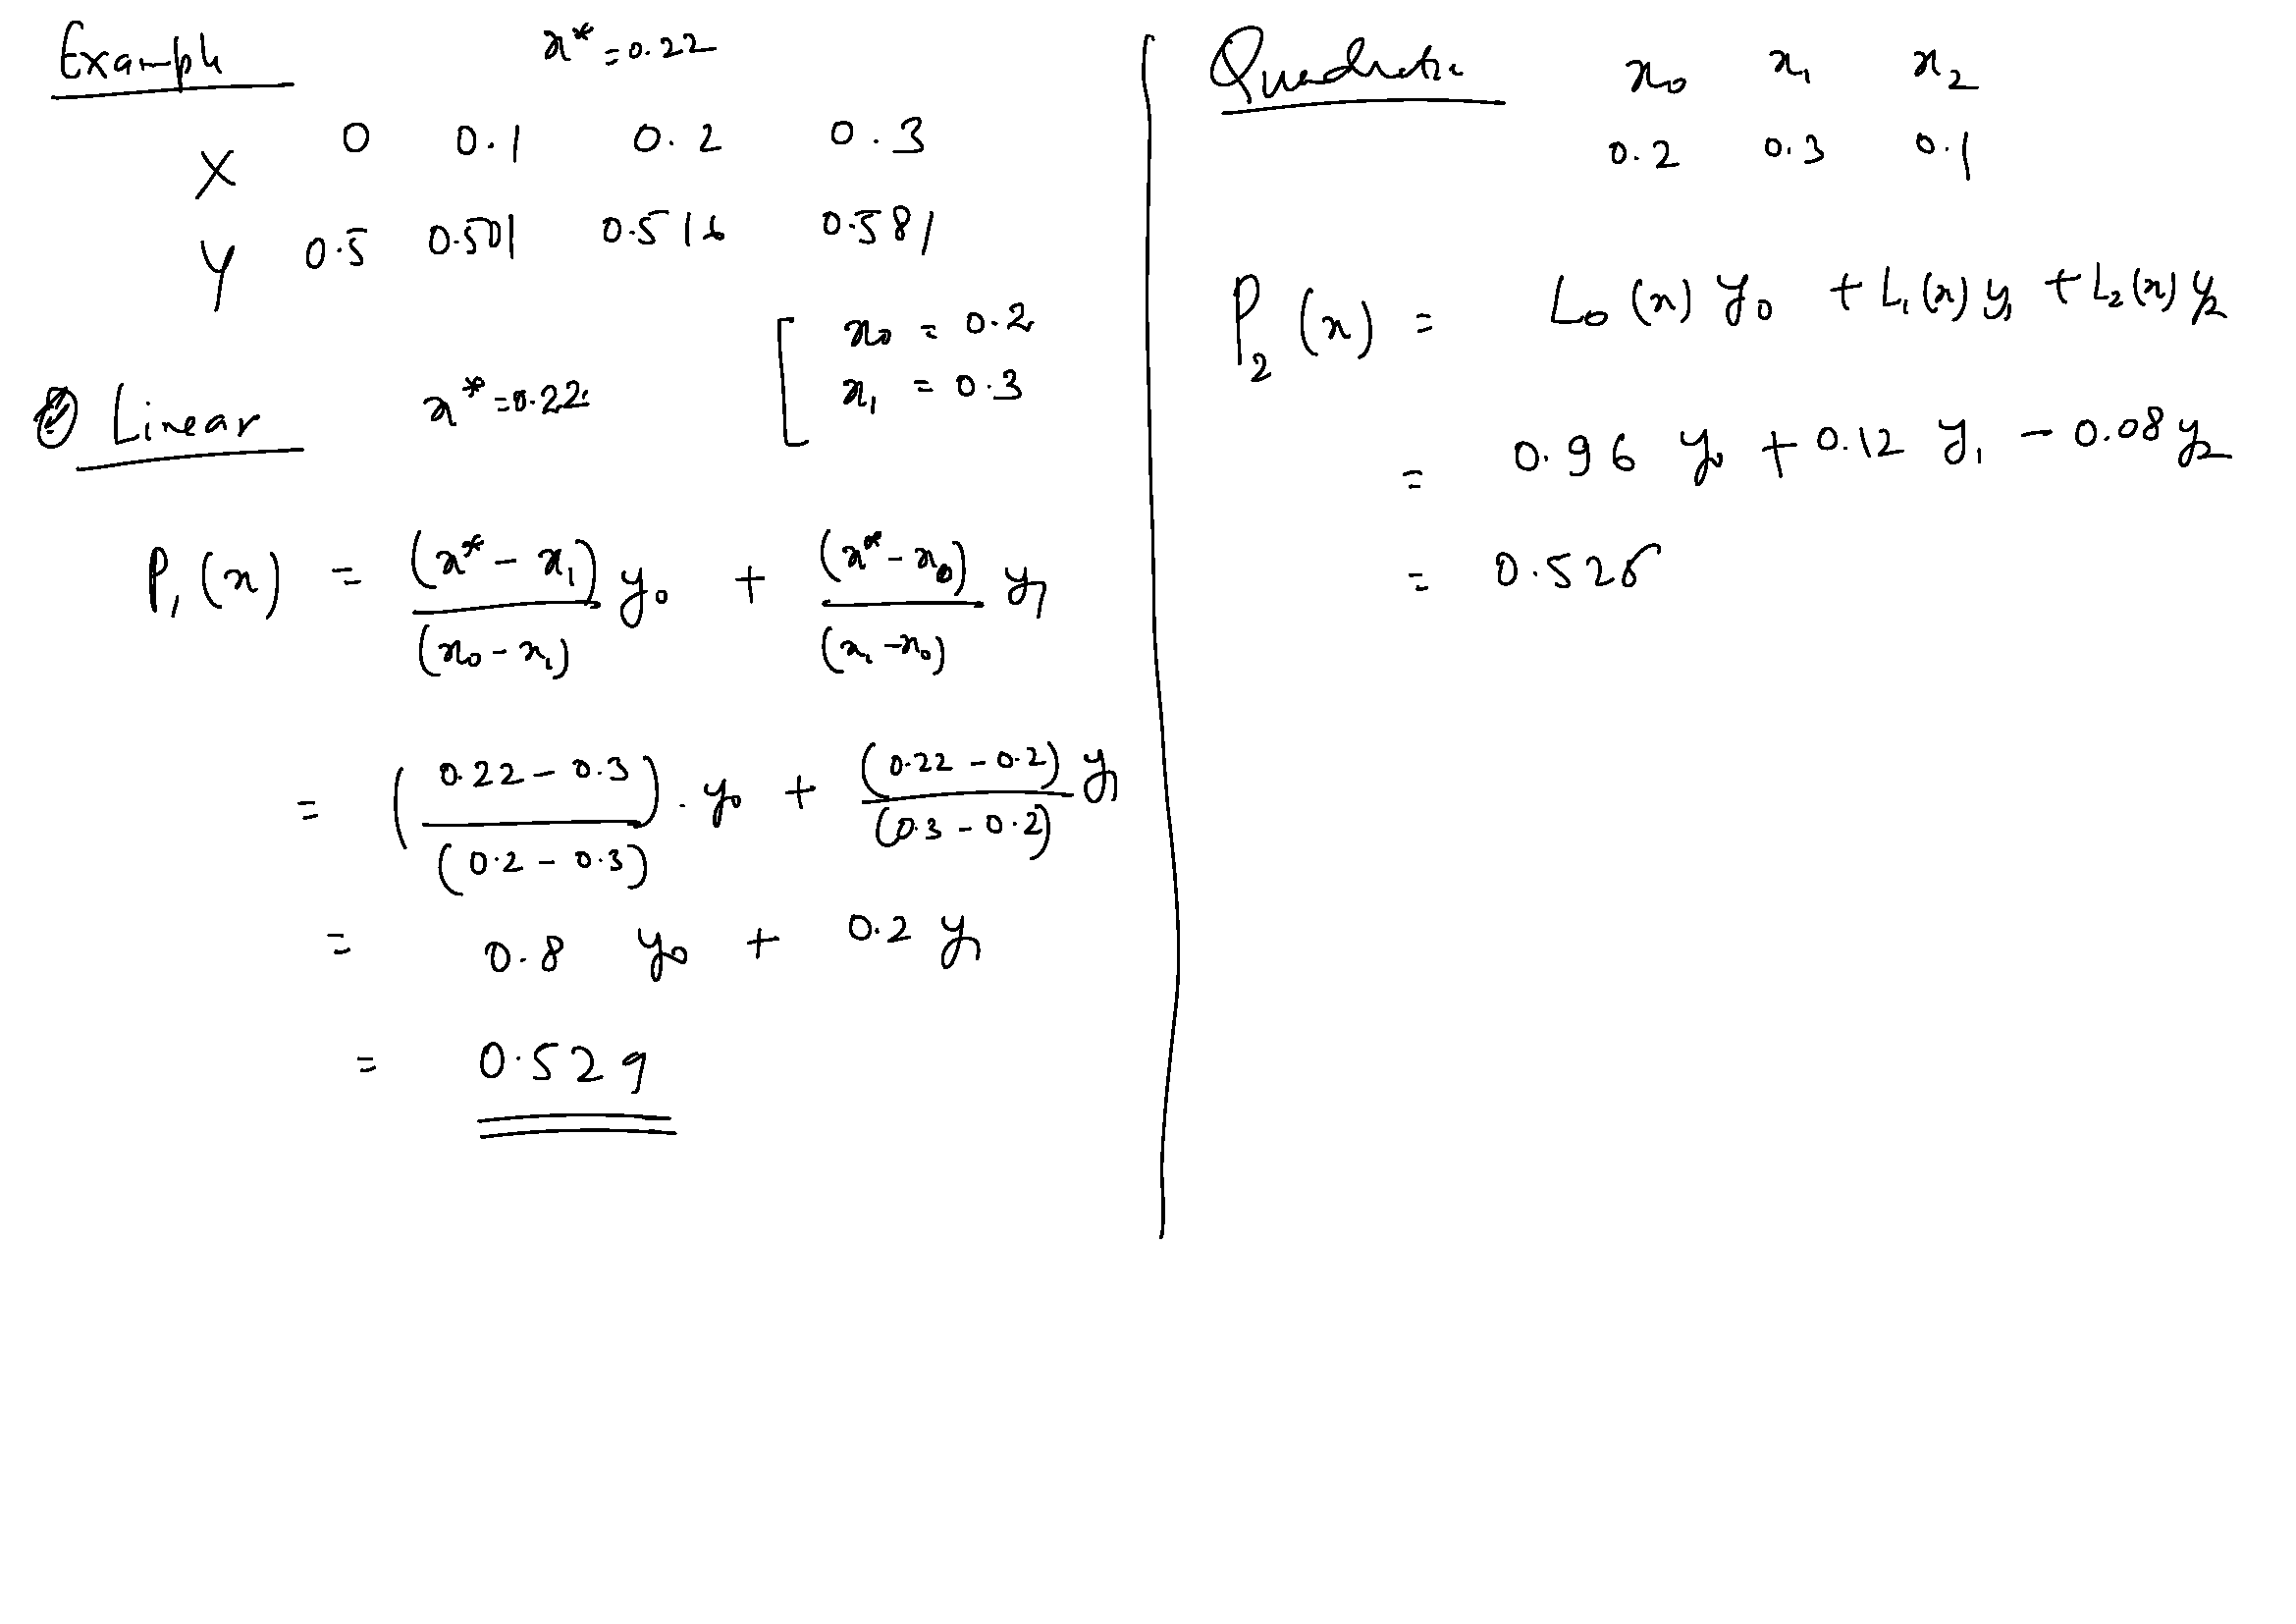 Example x* = 0.22
X 0 0.1 0.2 0.3
Y 0.5 0.501 0.516 0.581
Linear x* = 0.22 [ x₀ = 0.2
x₁ = 0.3
P₁(x) = (x* - x₁)/(x₀ - x₁) y₀ + (x* - x₀)/(x₁ - x₀) y₁
= ((0.22 - 0.3)/(0.2 - 0.3)) . y₀ + (0.22 - 0.2)/(0.3 - 0.2) y₁
= 0.8 y₀ + 0.2 y₁
= 0.529
Quadratic x₀ x₁ x₂
0.2 0.3 0.1
P₂(x) = L₀(x) y₀ + L₁(x) y₁ + L₂(x) y₂
= 0.96 y₀ + 0.12 y₁ - 0.08 y₂
= 0.525